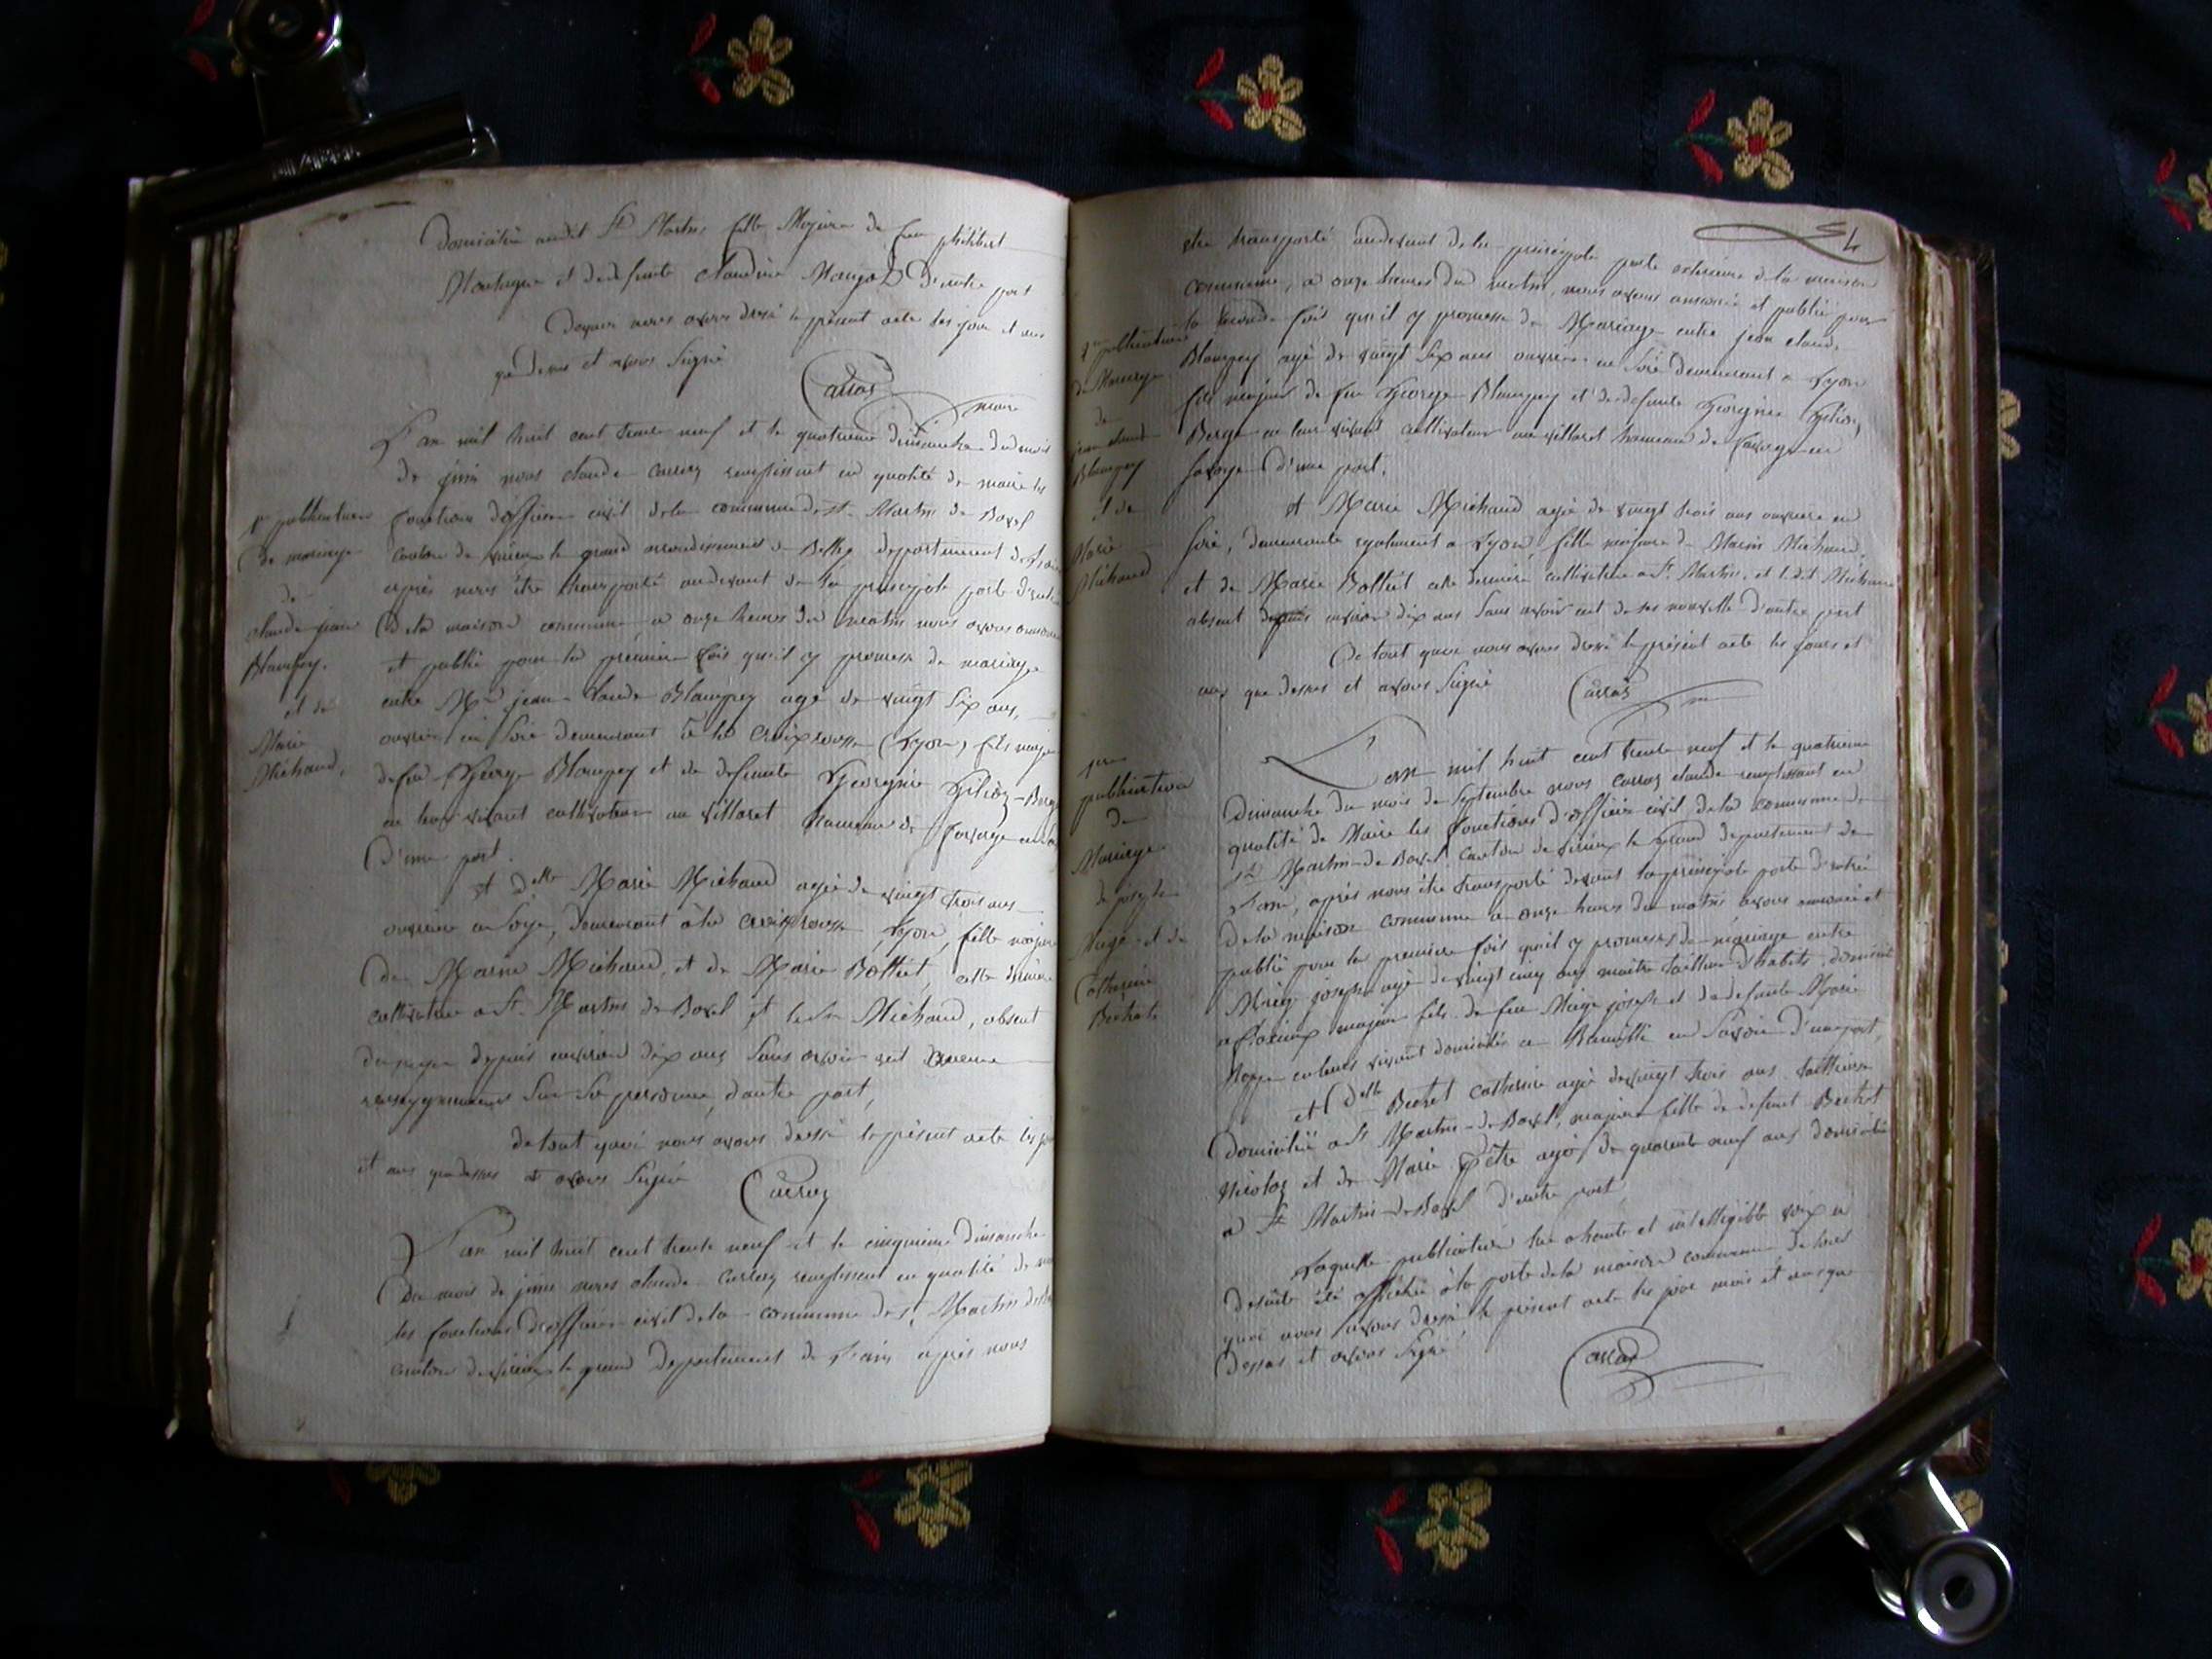 domiciliée audit St Martin fille Majeure de feu philibert
Montagne et de defunte claudine Mangod d'autre part
Dequoi nous avons dressé le présent acte les jour et ans
que dessus et avons Signé
Carraz
maire
L'an mil huit cent trente neuf et le quatrieme dimanche du mois
de juin nous claude carraz remplissant en qualité de maire les
1re publication
de mariage
de
claude jean
Blampey.
et de
Marie
Michaud,
fonctions d'officier civil de la commune de St. Martin de Bavel
canton de virieux le grand arrondissement de Belley departement de l'ain
après nous être transporté audevant de la principale porte d'entrée
de la maison commune a onze heures du matin nous avons annoncé
et publié pour la premiere fois qu'il y promesse de mariage
entre Mr jean-Claude Blampey agé de vingt six ans,
ouvrier en soie demeurant à la Croixrousse (Lyon) fils majeur
de feu George Blampey et de defunte Georgine
en leur vivant cultivateur au villaret hameau de
D'une part.
et delle Marie Michaud agée de vingt trois ans
ouvriere en Soye, demeurant à la croixrousse, Lyon, fille majeure
de Marin Michaud, et de Marie Bottiet, cette derniere
cultivatrice a St. Martin de Bavel et le Sr Michaud, absent
du pays depuis environ dix ans Sans avoir eut aucune
renseignements Sur Sa personne, d'autre part,
de tout quoi nous avons dressé le présent acte les jour
et ans que dessus et avons Signé
Carraz
L'an mil huit cent trente neuf et le cinquieme Dimanche
du mois de juin nous claude carraz remplissant en qualité de
les fonctions d'officier civil de la commune de St. Martin de
canton de virieux le grand departement de l'ain après nous
54
etre transporté audevant de la principale porte exterieure de la maison
commune, a onze heures du matin, nous avons annoncé et publié pour
la seconde fois qu'il y promesse de Mariage entre jean claude
2me publication
de Mariage
de
jean claude
Blampey
et de
Marie
Michaud
Blampey agé de vingt six ans ouvrier en Soie demeurant a Lyon
fils majeur de feu George Blampey et de defunte Georgine
Berge en leur vivant cultivateur au villaret hameau de
Savoye D'une part.
et Marie Michaud agée de vingt trois ans ouvriere en
Soie, demeurante egalement a Lyon, fille majeure de Marin Michaud,
et de Marie Bottiet cette derniere cultivatrice a St. Martin, et l.dit Michaud
absent depuis environ dix ans Sans avoir eut de ses nouvelle d'autre part
De tout quoi nous avons dressé le présent acte les jours et
ans que dessus et avons Signé
Carraz
1re
publication
de
Mariage
de joseph
Miege et de
Catherine
Bechet
L'an mil huit cent trente neuf et le quatrieme
Dimanche du mois de Septembre nous carraz claude remplissant en
qualité de Maire les fonctions d'officier civil de la commune de
St. Martin-de Bavel canton de virieux le grand departement de
l'ain, après nous être transporté devant la principale porte d'entrée
de la maison commune a onze heures du matin avons annoncé et
publié pour la premiere fois qu'il y promesse de mariage entre
Miege joseph agé de vingt cinq ans maitre tailleur d'habits, domicilié
a majeur fils de feu Miege joseph et de defunte Marie
en leurs vivant domiciliés a en Savoie D'une part,
et delle Catherine agée de vingt trois ans tailleuse
domiciliée a St. Martin-de-Bavel, majeure fille de defunt Bechet
Nicolas et de Marie Pêtre agé de quarante neuf ans domiciliée
a St. Martin-de-Bavel d'autre part
Laquelle publication lue a haute et intelligible voix a
desuite été affichée à la porte de la maison commune. de tous
quoi nous avons dressé le présent acte les jour mois et ans que
dessus et avons Signé
Carraz